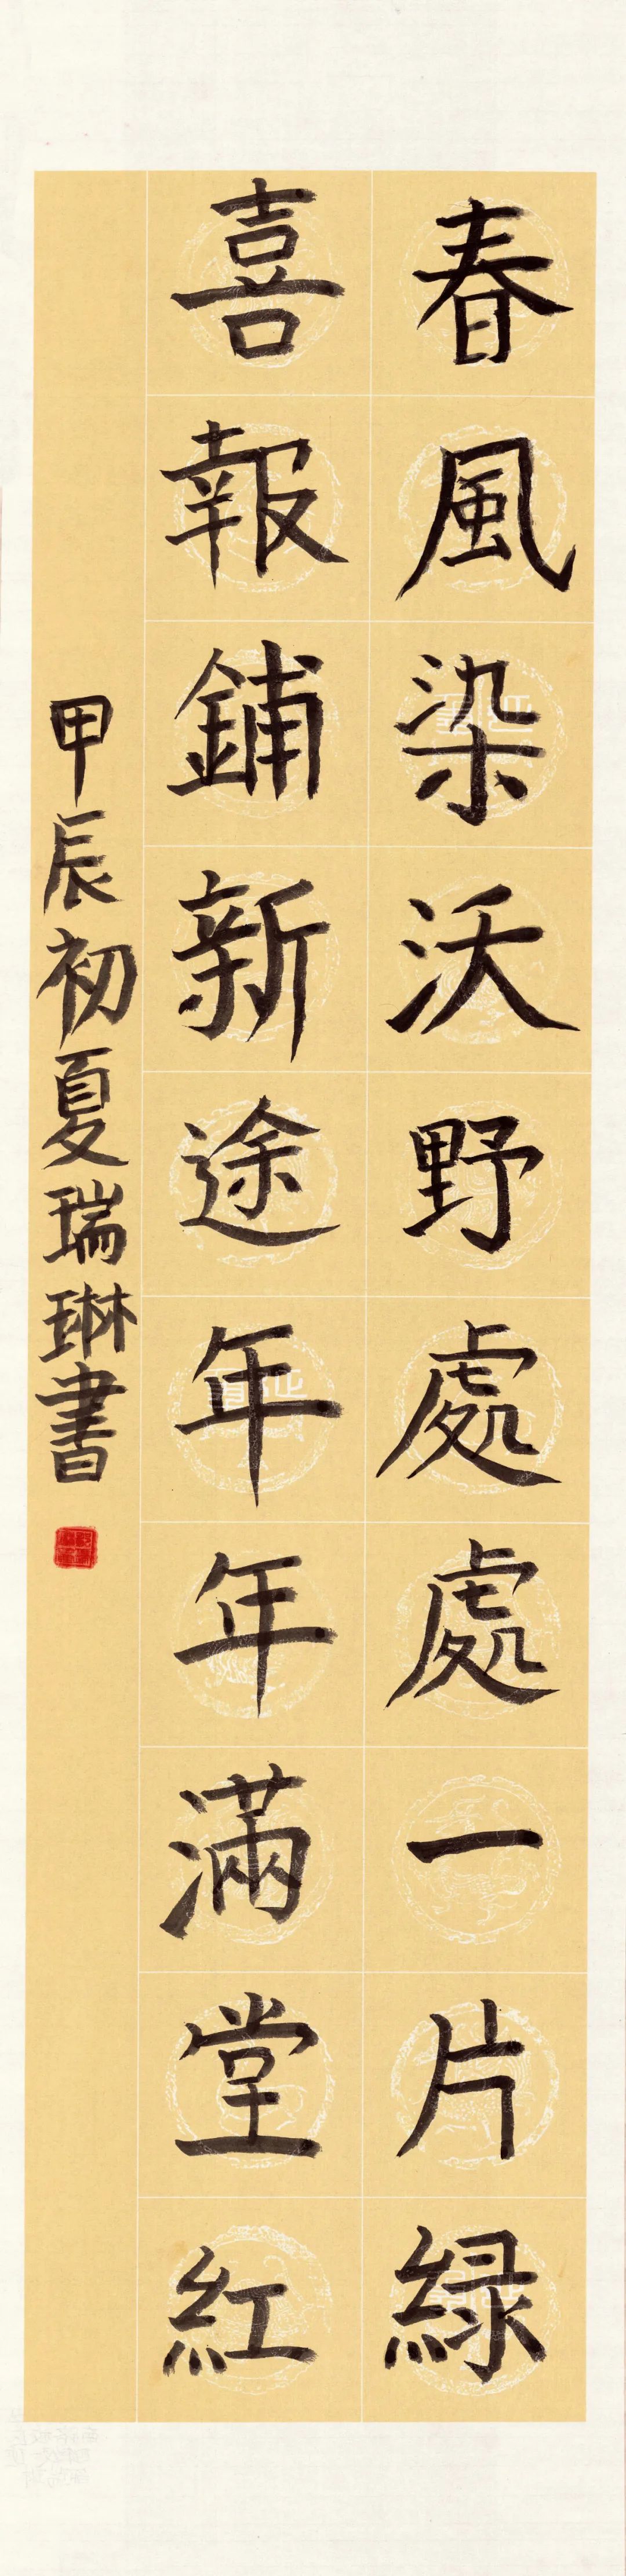 春風染沃野處處一片緑
喜報鋪新途年年滿堂紅
甲辰初夏瑞琳書